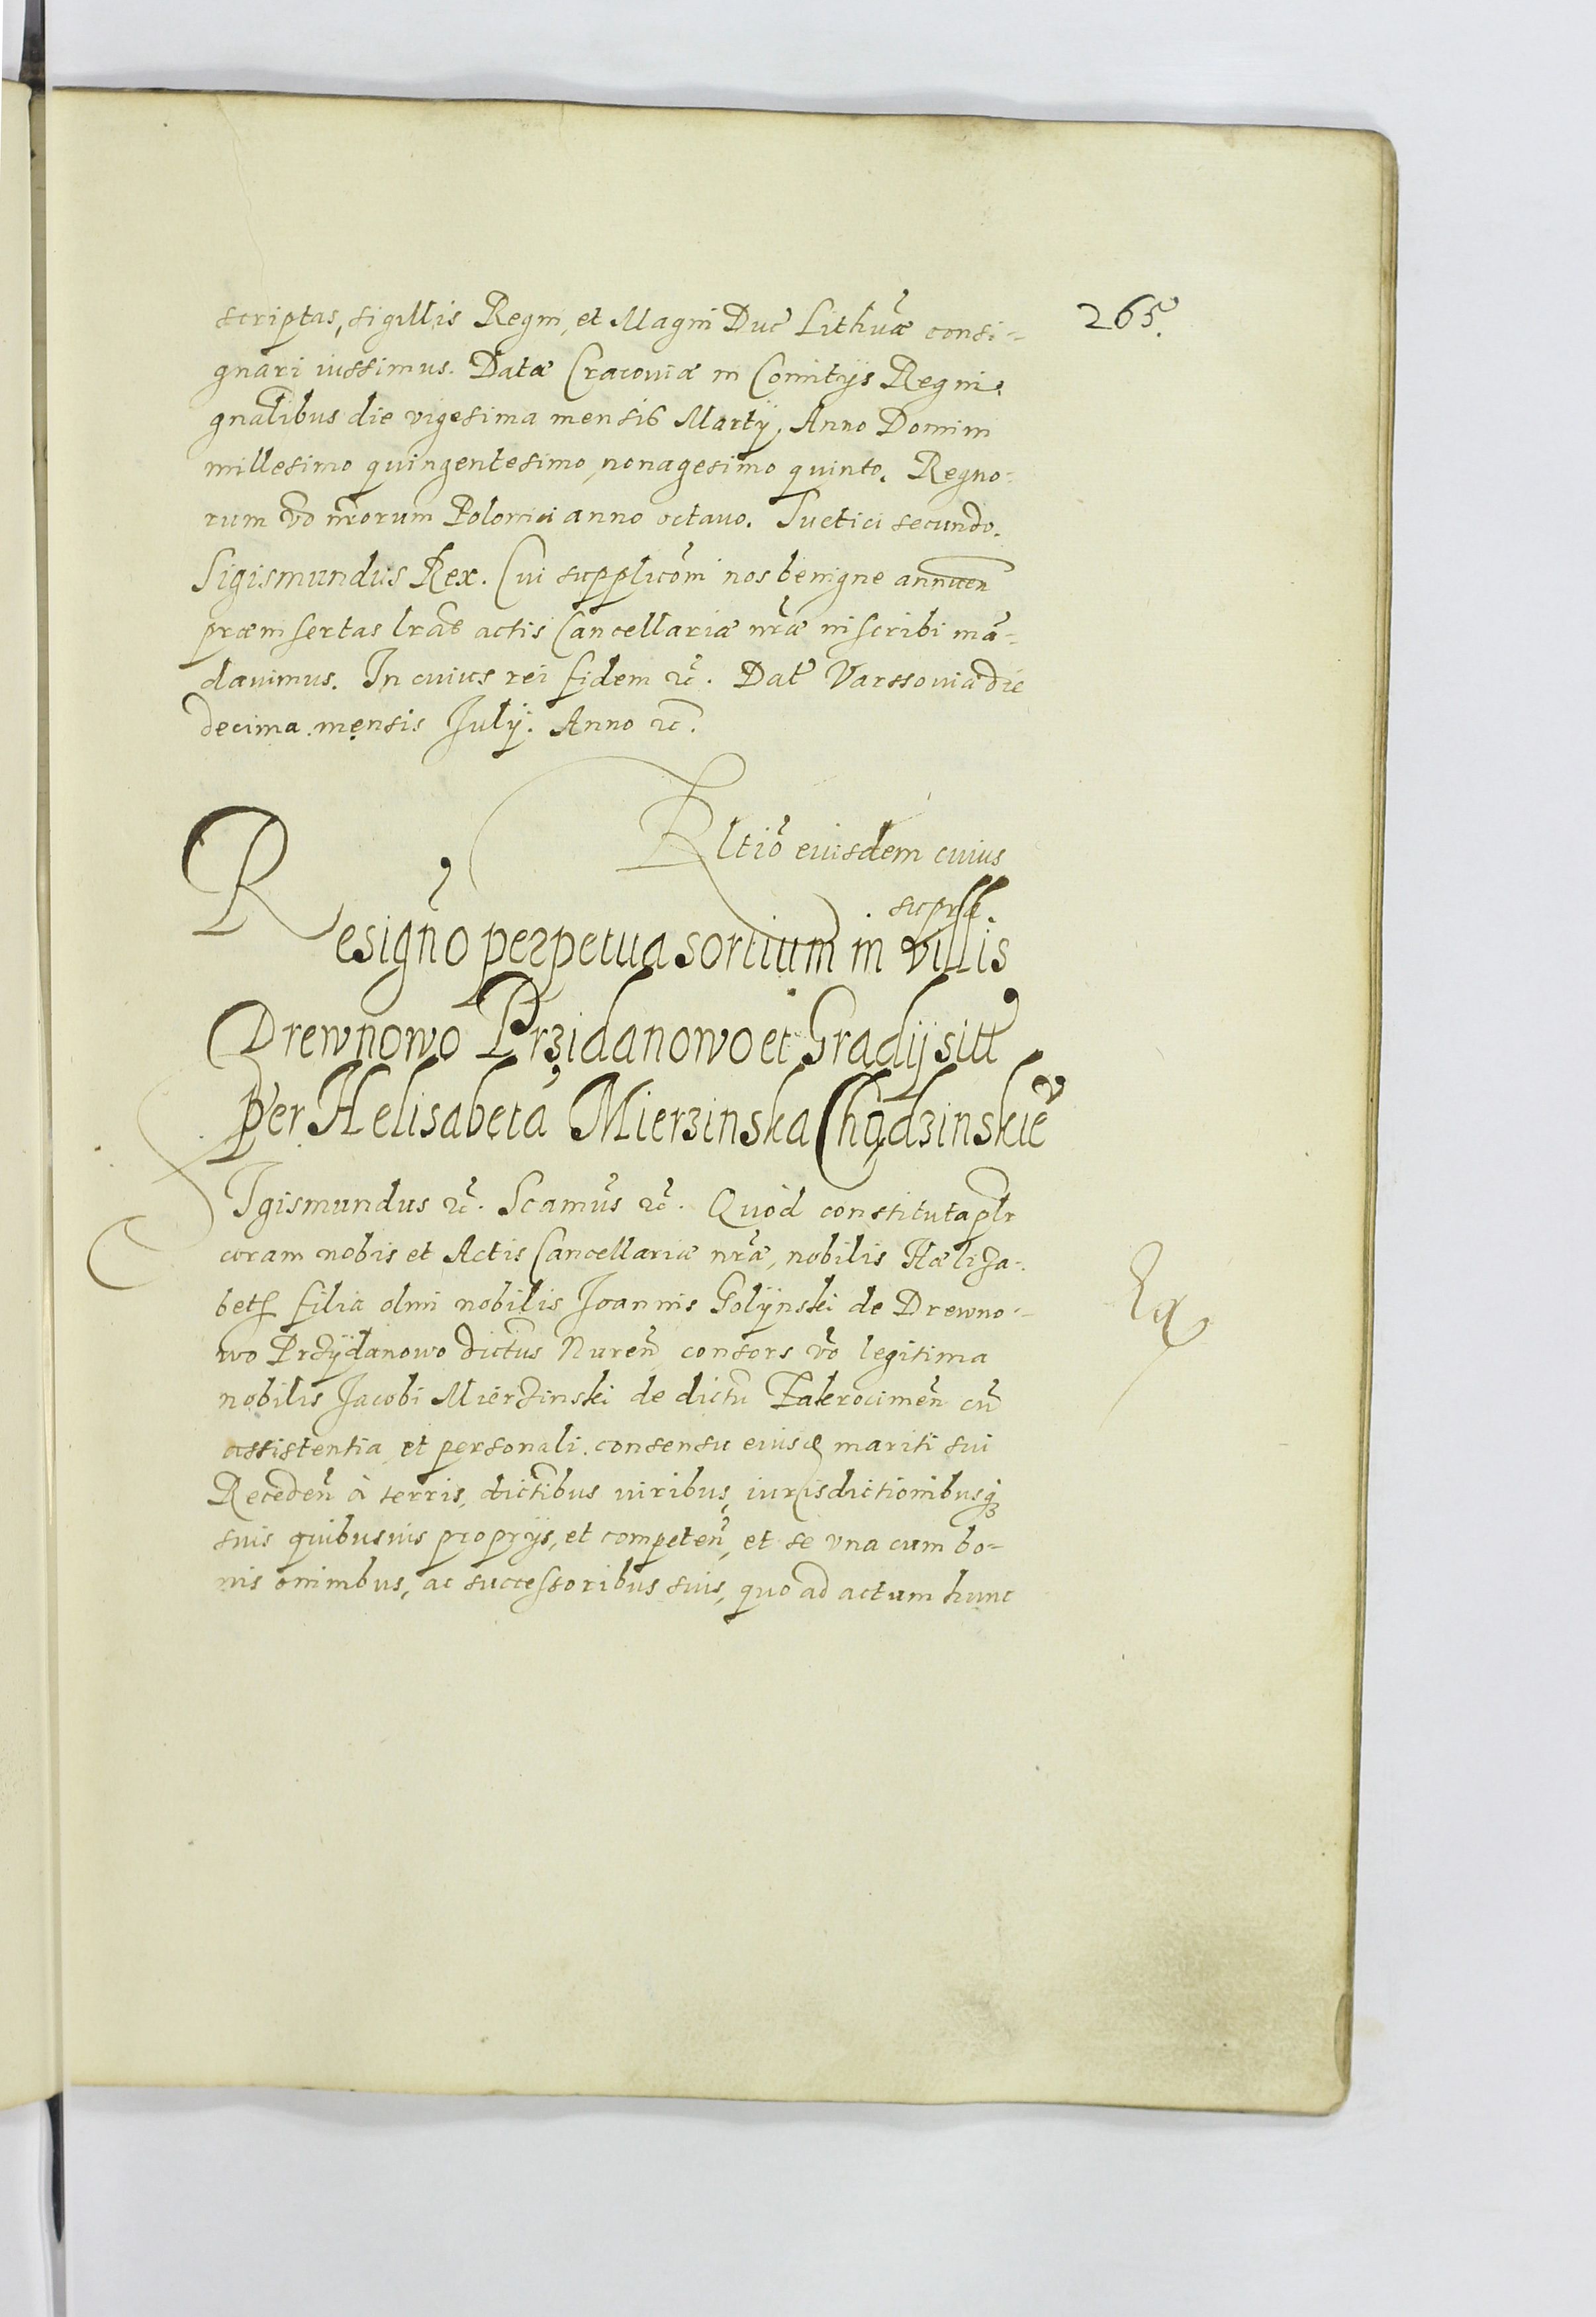 265.
scriptas, sigillis Regni, et Magni Duc̃ Lithũæ consi-
gnari iussimus. Datæ Cracoviæ in Comitijs Regni
gnãlibus die vigesima mensis Martij, Anno Domini
millesimo quingentesimo, nonagesimo quinto. Regno-
rum ṽo nr̃orum Polonici anno octavo. Suetici secundo.
Sigismundus Rex. Cui supplicõni nos benigne annuen̄
præinsertas lr̃as actis Cancellariæ nr̃æ inscribi mã-
davimus. In cuius rei fidem ꝛc̃. Dat̃ Varssoviæ die
decima mensis Julij. Anno ꝛc̃.
Rltiõ eiusdem cuius
supra.
Resigñ̃o perpetua sortium in villis
Drewnowo Przidanowo et Gradij sitt̃
per Helisabetã Mierzinska Chądzinskie̊
Sigismundus ꝛc̃. Scamũs ꝛc̃. Quod constituta pl̃r
coram nobis et Actis Cancellariæ nr̃æ, nobilis Hæliza-
beth filia olim nobilis Joannis Golijnski de Drewno-
wo Przÿdanowo dictus Nureñ, consors ṽo legitima
nobilis Jacobi Mierzinski de dictũ Zakrocimeñ cũ
assistentia et personali consensu eiusđ mariti sui
Recedeñ à terris, dictĩbus viribus, iurisdictionibusqꝫ
suis quibusuis proprijs, et competeñ, et se vna cum bo-
nis omnibus, ac successoribus suis, quo ad actum hunc